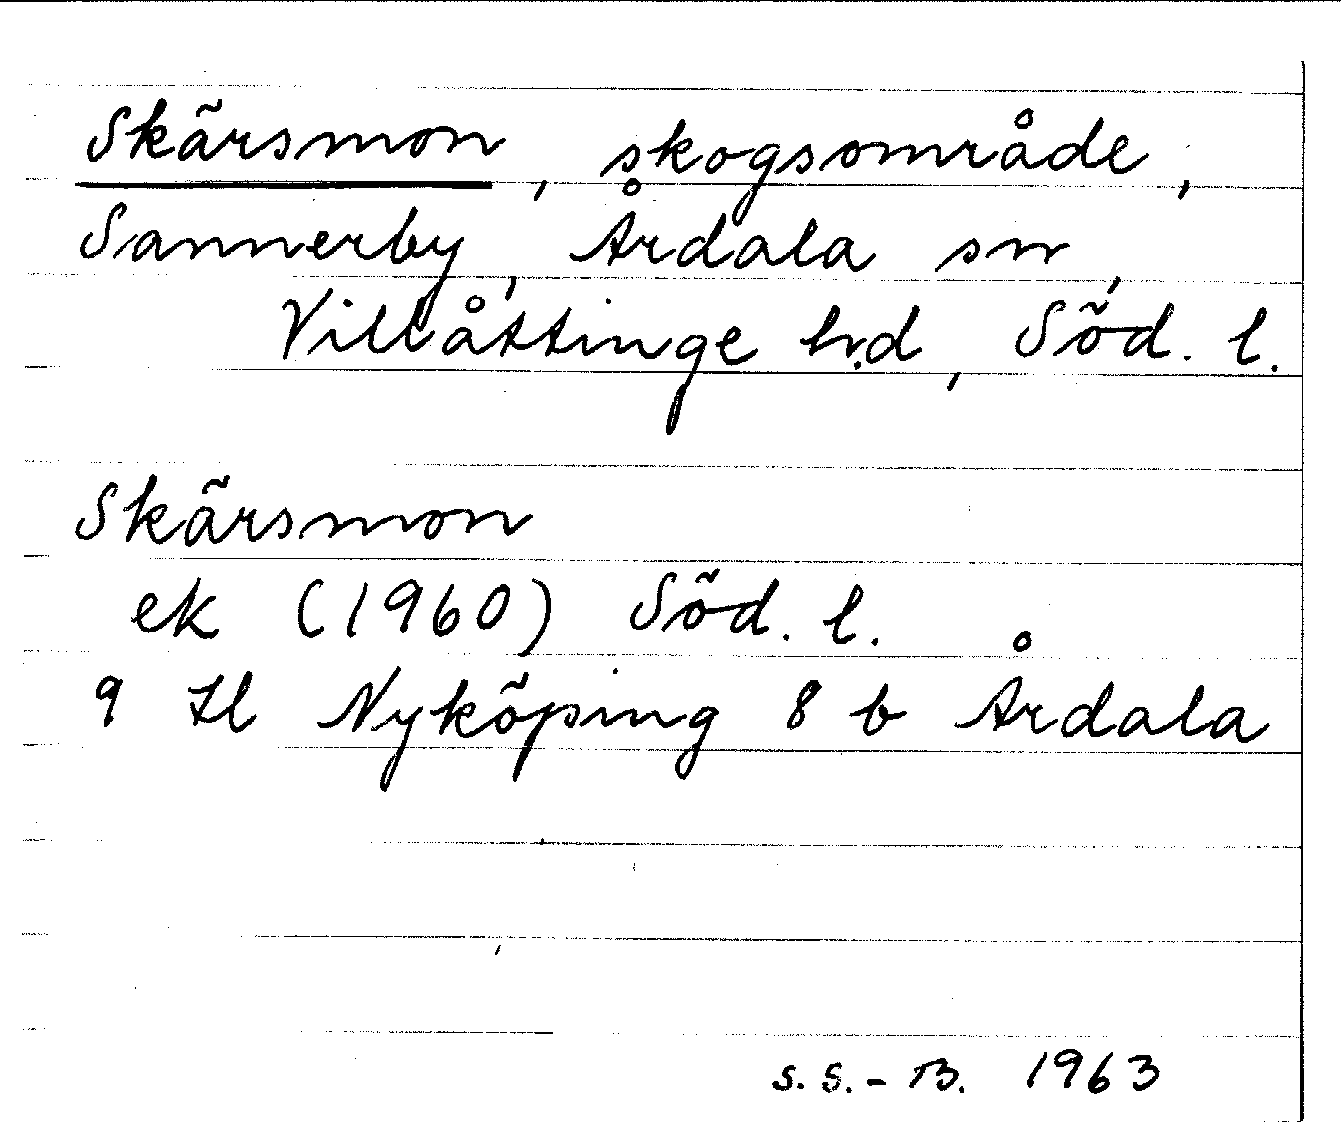 Skärsmon, skogsområde,
Sannerby, Årdala sn,
Villåttinge hd, Söd. l.
Skärsmon
ek (1960) Söd. l.
9 H Nyköping 8 b Årdala
S.S.-B. 1963